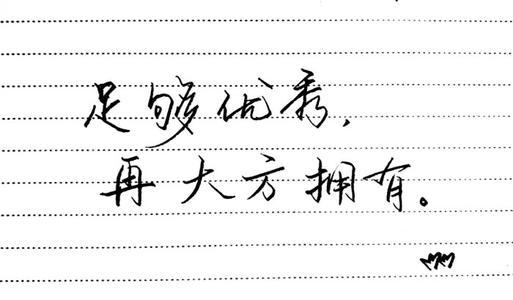 足够优秀,
再大方拥有。